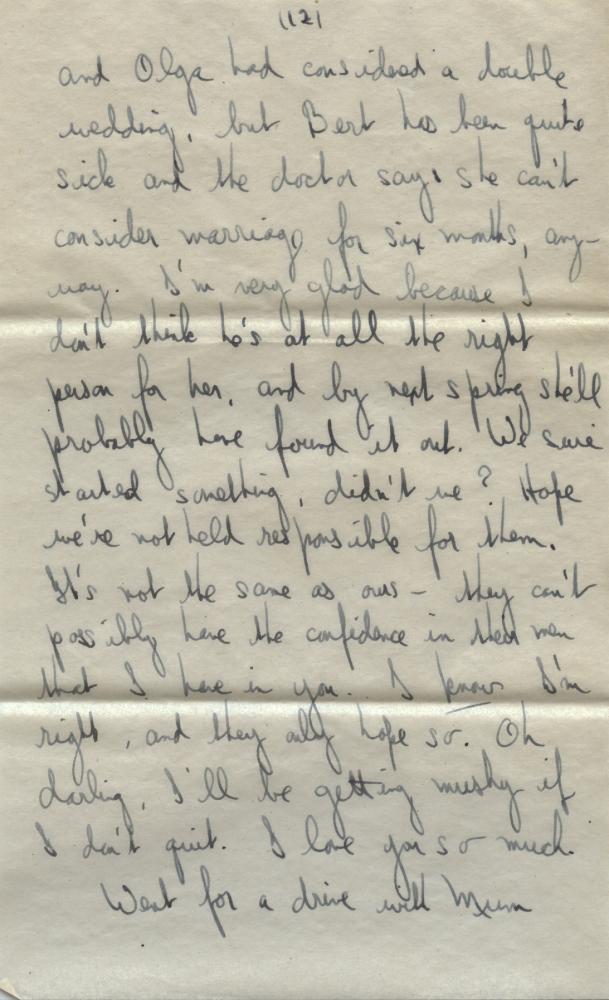 (12)
and Olga had considered a double
wedding, but Bert has been quite
sick and the doctor says she can't
consider marriage for six months, any-
way. I'm very glad because I
don't think he's at all the right
person for her, and by next spring she'll
probably have found it out. We sure
started something, didn't we? Hope
we're not held responsible for them.
It's not the same as ours – they can't
possibly have the confidence in their men
that I have in you. I know I'm
right, and they only hope so. Oh
darling, I'll be getting mushy if
I don't quit. I love you so much.
Went for a drive with Mum